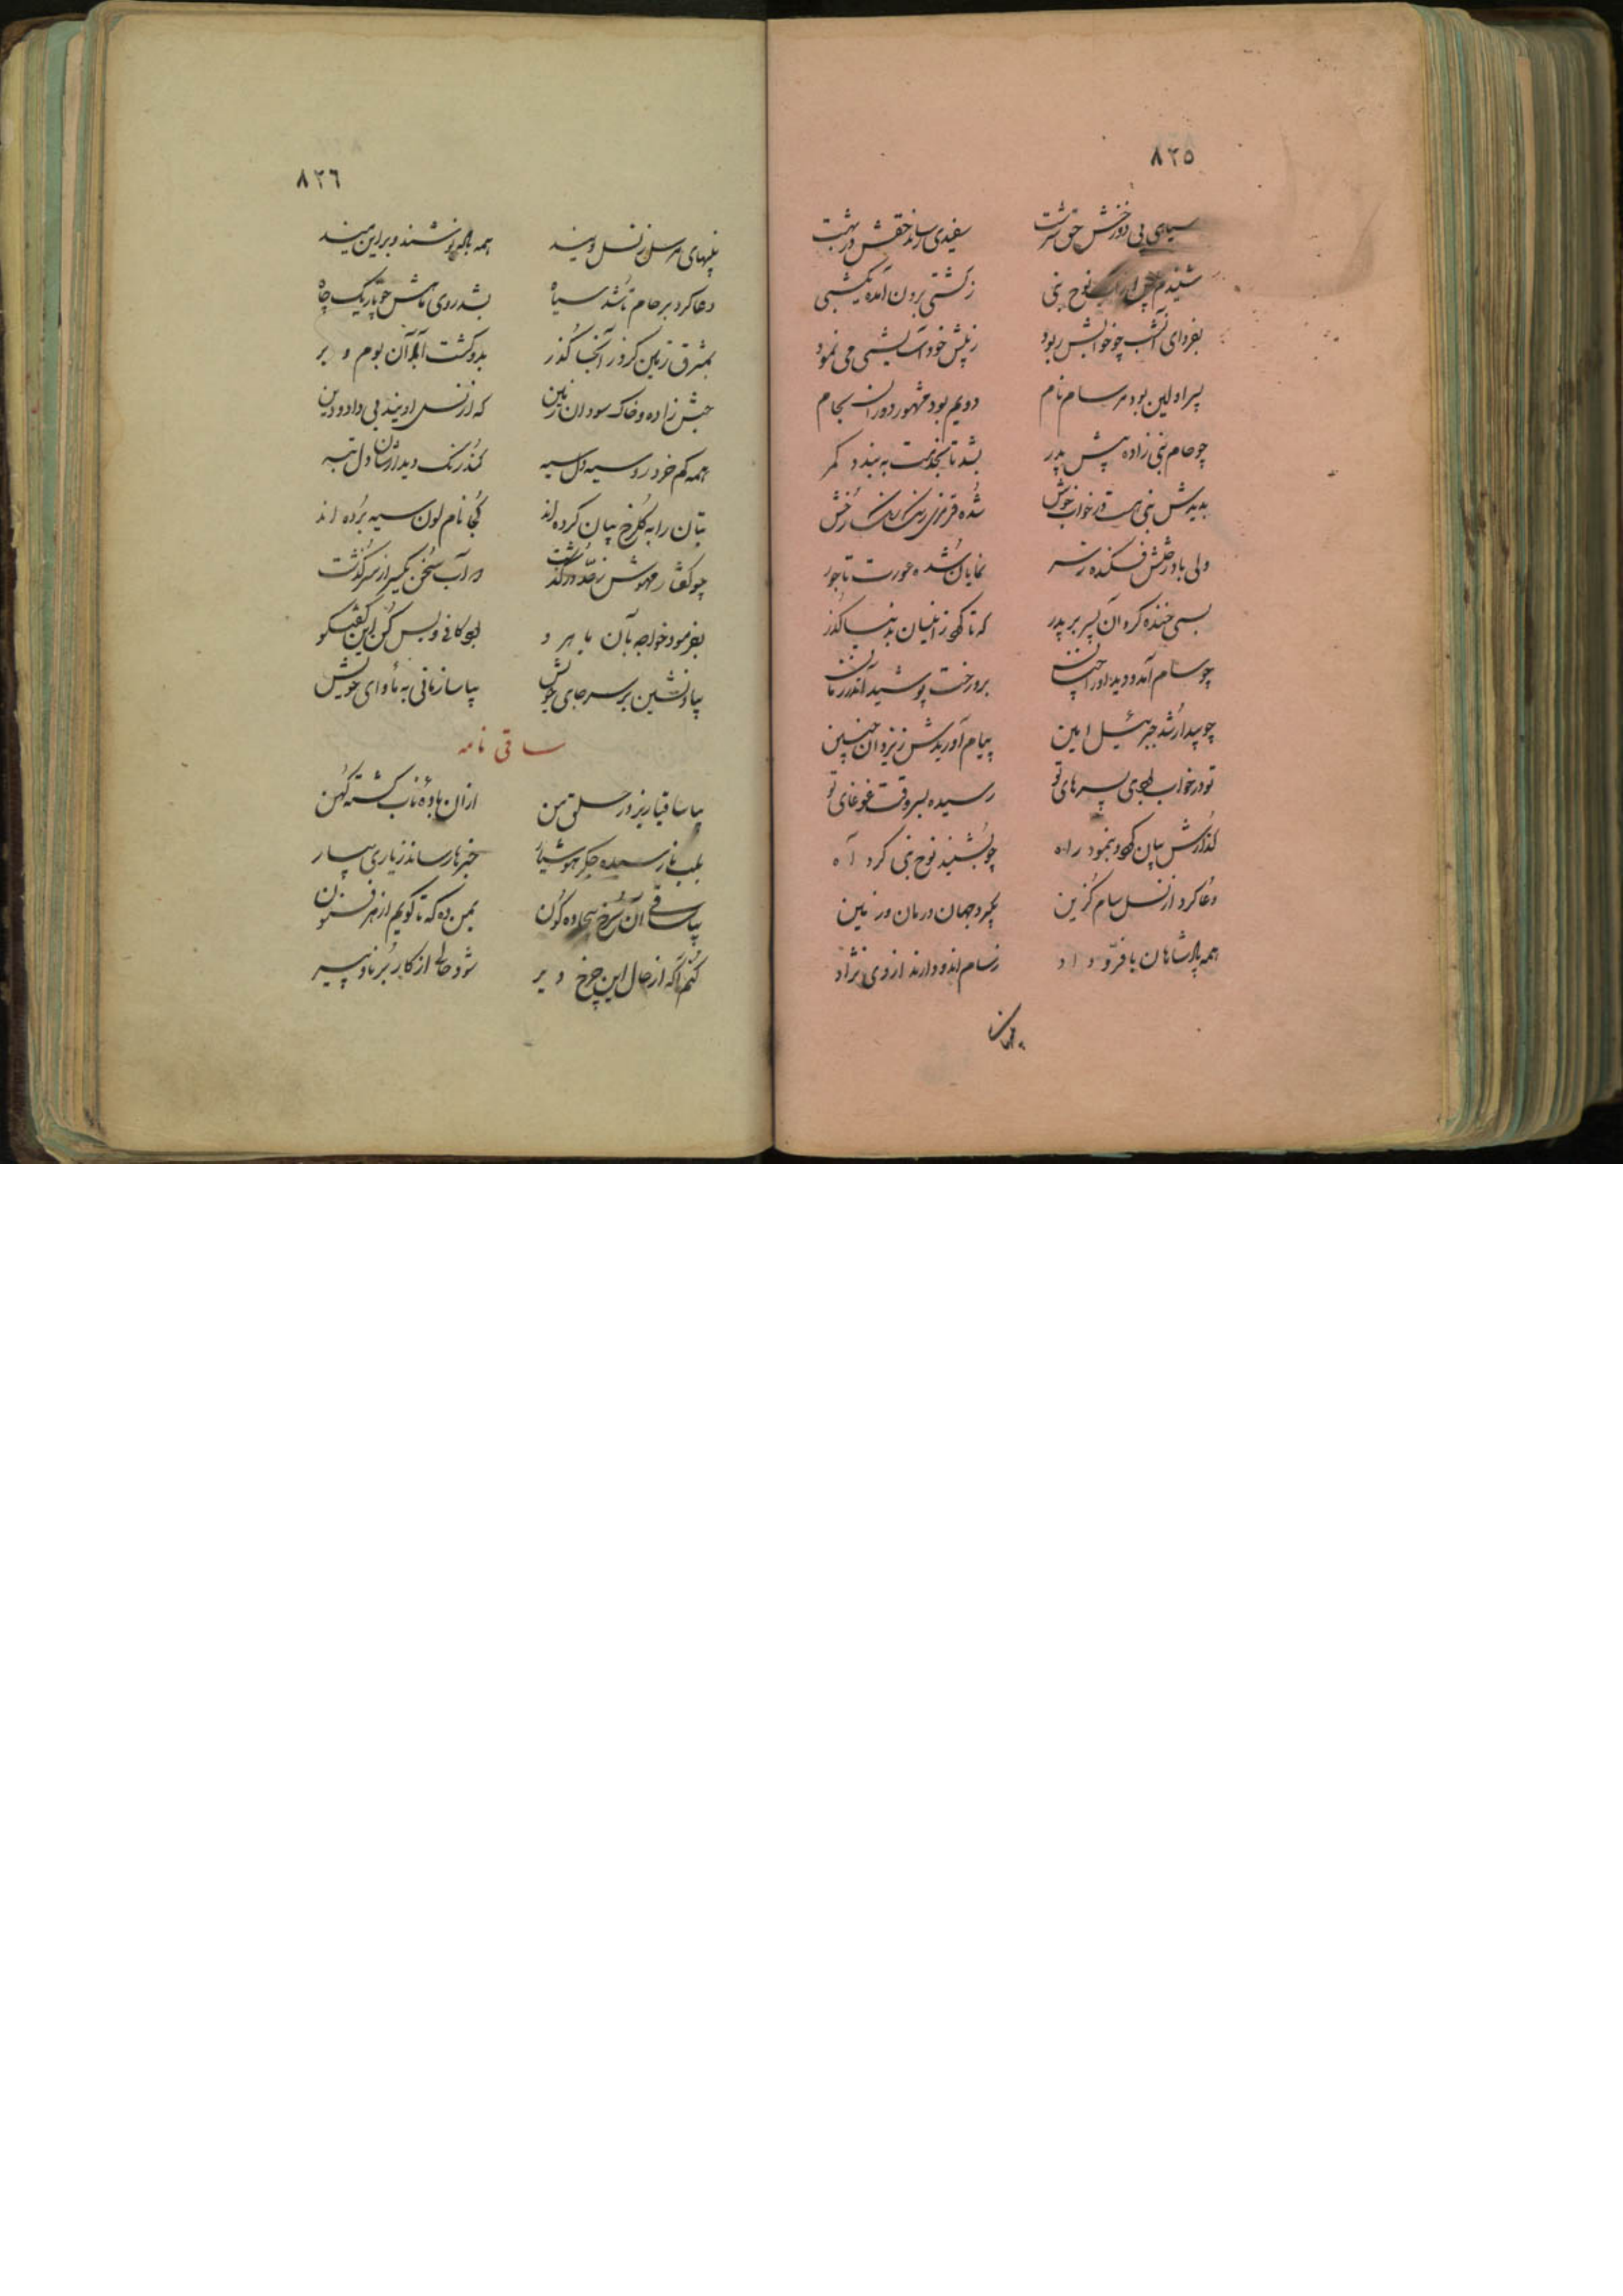 ٨٢٥
سیاهی بی دوزخش حق سرشت سفیدی رساند حقش در بهشت
شنیدم نوح نبی ز کشتی برون آمده یکشبی
بفردای آنشب چو خوابش ربود ز پیش خود آسایشی می نمود
پسر اولین بود مر سام نام دویم بود مشهور دوران بحام
چو حام نبی زاده پیش پدر بشد تا بخدمت به بندد کمر
بدیدش نبی هست در خواب خوش شده قرمزی رنگ رخش
ولی باد رختش فکنده ز سر نمایان شده عورت تاجور
بسی خنده کرد آن پسر بر پدر که تا کی ز دنیا گذر
چو سام آمد و دید او را چنان برو رخت پوشید اندر زمان
چو بیدار شد جبرئیل امین پیام آوریدش ز یزدان چنین
تو در خواب بودی پسرهای تو رسیده بسر وقت غوغای تو
گذارش بیان کرد و بنمود راه چو بشنید نوح نبی کرد آه
دعا کرد از نسل سام گزین بگیرد جهان در زمان و زمین
همه پادشاهان با فرّ و داد ز سام اند و دارند از وی نژاد
٨٢٦
نبیهای مرسل ز نسل ویند همه باگهر و برابر میند
دعا کرد بر حام تا شد سیاه بشد روی ماهش چو تاریک چاه
بمشرق زمین کرد از آنجا گذر بدو گشت آباد آن بوم و بر
حبش زاده و خاک سودان زمین که از نسل اویند بی داد و دین
همه کم خرد رو سیه دل سیه کند رنگ دیدارشان دل تبه
بتان را به گلرخ بیان کرده اند کجا نام لون سیه برده اند
چو گفتار مهوش ز حد درگذشت در آب سخن یکسر از سر گذشت
بفرمود خواجه بآن ماهرو بود کافی و بس کن این گفتگو
بیا و نشین بر سر جای خویش بیاساز مانی به مأوای خویش
ساقی نامه
بیا ساقیا ریز در حلق من از آن باده ناب گشته کهن
بلب نارسیده جگر خبرها رساند ز یاری بیار
بیا ساقی آن سرخ بیجاده گون بمن ده که تا گویم از هر فنون
کنم آگه از حال این چرخ دیر شود حالی از کار برنا و پیر